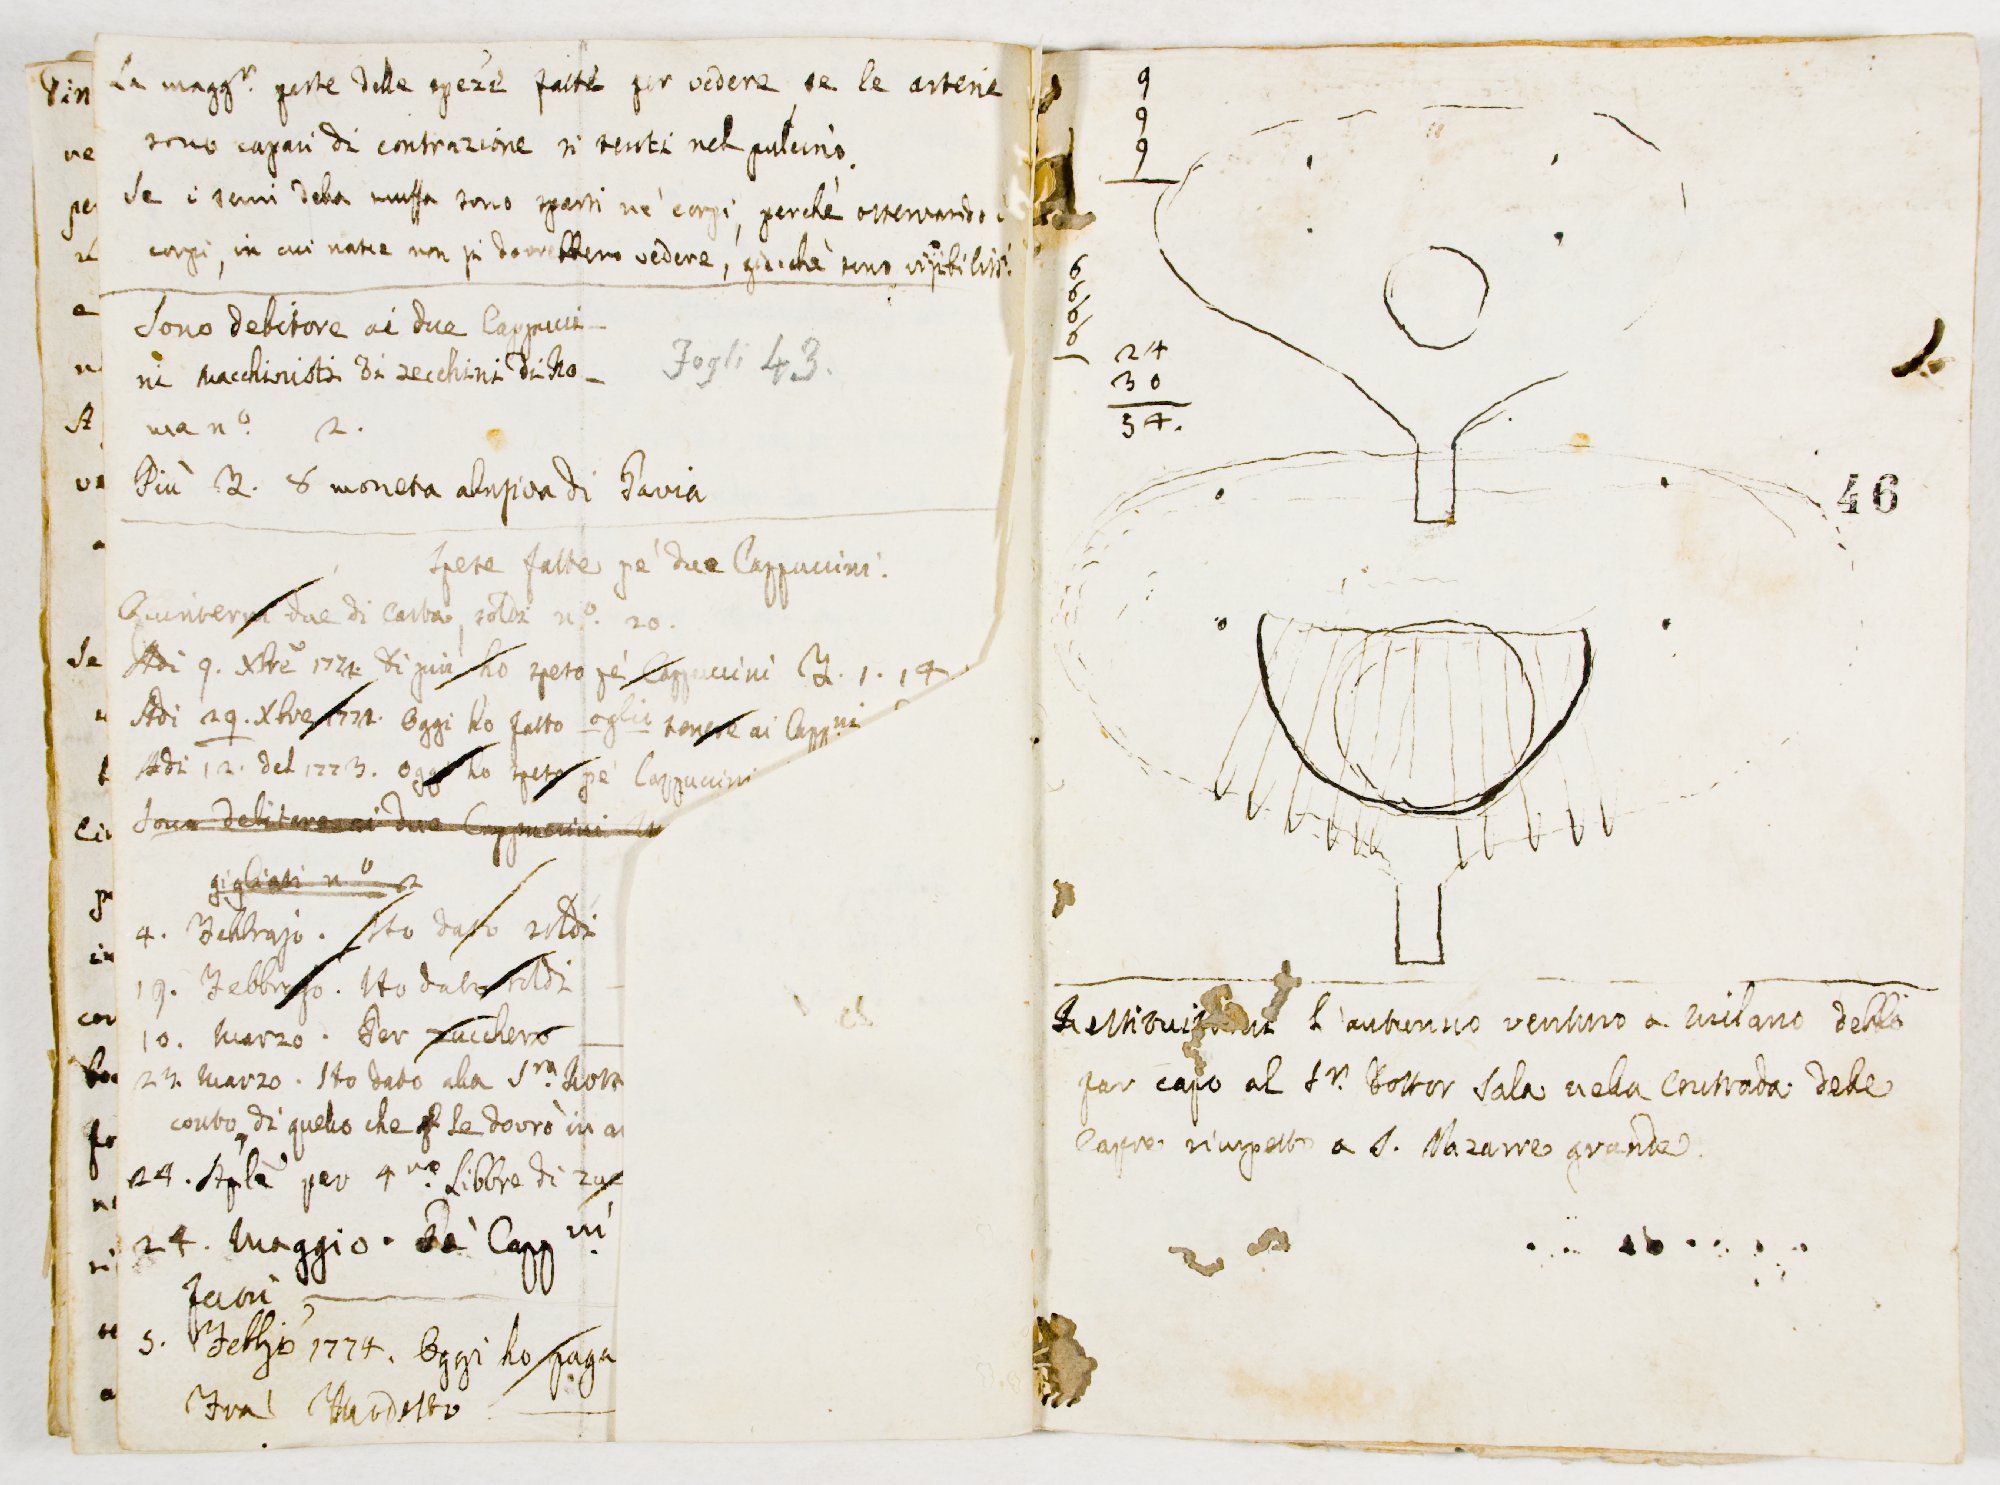 La maggr. parte delle speze fatte per vedere se le arterie
sono capaci di contrazione si tenti nel pulcino.
Se i semi della muffa sono sparsi ne' corpi, perchè osservando i
corpi, in cui nasce non si dovrebbero vedere, giacchè sono visibiliss.
Sono debitore ai due Cappucci-
ni Macchinisti di zecchini di Ro-
ma nº. 2.
Più 8 moneta abusiva di Pavia
Fogli 43.
Spese fatte pe' due Cappuccini.
Quinterni due di Carta, soldi nº. 20.
Adi 9. Xbre 1772. di più ho speso pe' Cappuccini 1. 14
Adi 29. Xbre 1772. Oggi ho fatto tenere ai Cappni
Adi 12. del 1773. Oggi ho speso pe' Cappuccini
Sono debitore ai due Cappuccini
gigliati nº 2
4. Febbrajo. Ho dato soldi
19. Febbrajo. Ho dato soldi
10. Marzo. Per zucchero
23. Marzo. Ho dato alla Sra.
conto di quello che le dovrò in
24. Aple per 4 Libbre di
24. Maggio. Pe' Cappni.
5. Febbjo 1774. Oggi ho paga
Fra Modesto
9
9
9
9
9
9
9
24
30
54.
46
l'autunno venturo a Milano
per capo al Sr. Dottor Sala nella Contrada delle
Capre rimpetto a S. Nazarre grande.